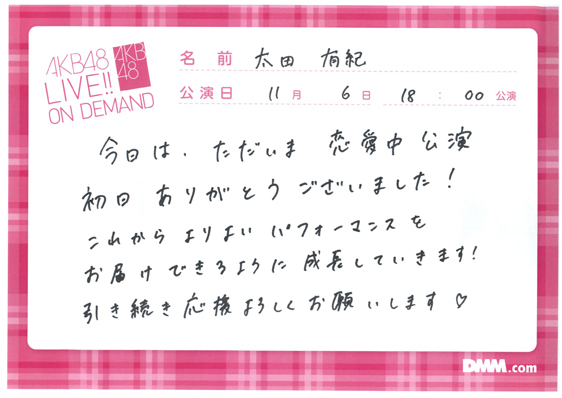 AKB48
LIVE!!
ON DEMAND
AKB
48
名前 太田 有紀
公演日 11月 6日 18:00公演
今日は、ただいま 恋愛中 公演
初日 ありがとうございました!
これから よりよい パフォーマンスを
お届けできるように 成長していきます!
引き続き応援よろしくお願いします♡
DMM.com